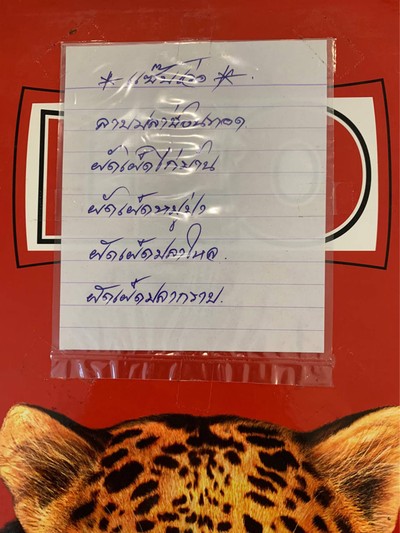 * เมนูเด็ด *
ลาบปลาช่อนทอด
ผัดเผ็ดไก่บ้าน
ผัดเผ็ดหมูป่า
ผัดเผ็ดปลาไหล
ผัดเผ็ดปลากราย.